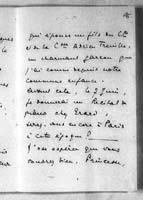 qui épouse un fils du Cte
et de la Ctesse
un charmant garçon que
j'ai connu depuis notre
commune enfance.
Avant cela, le 2 Juin,
je donnerai un Récital de
piano chez Erard ;
serez-vous encore à Paris
à cette époque ?
J'ose espérer que vous
voudrez bien, Princesse,